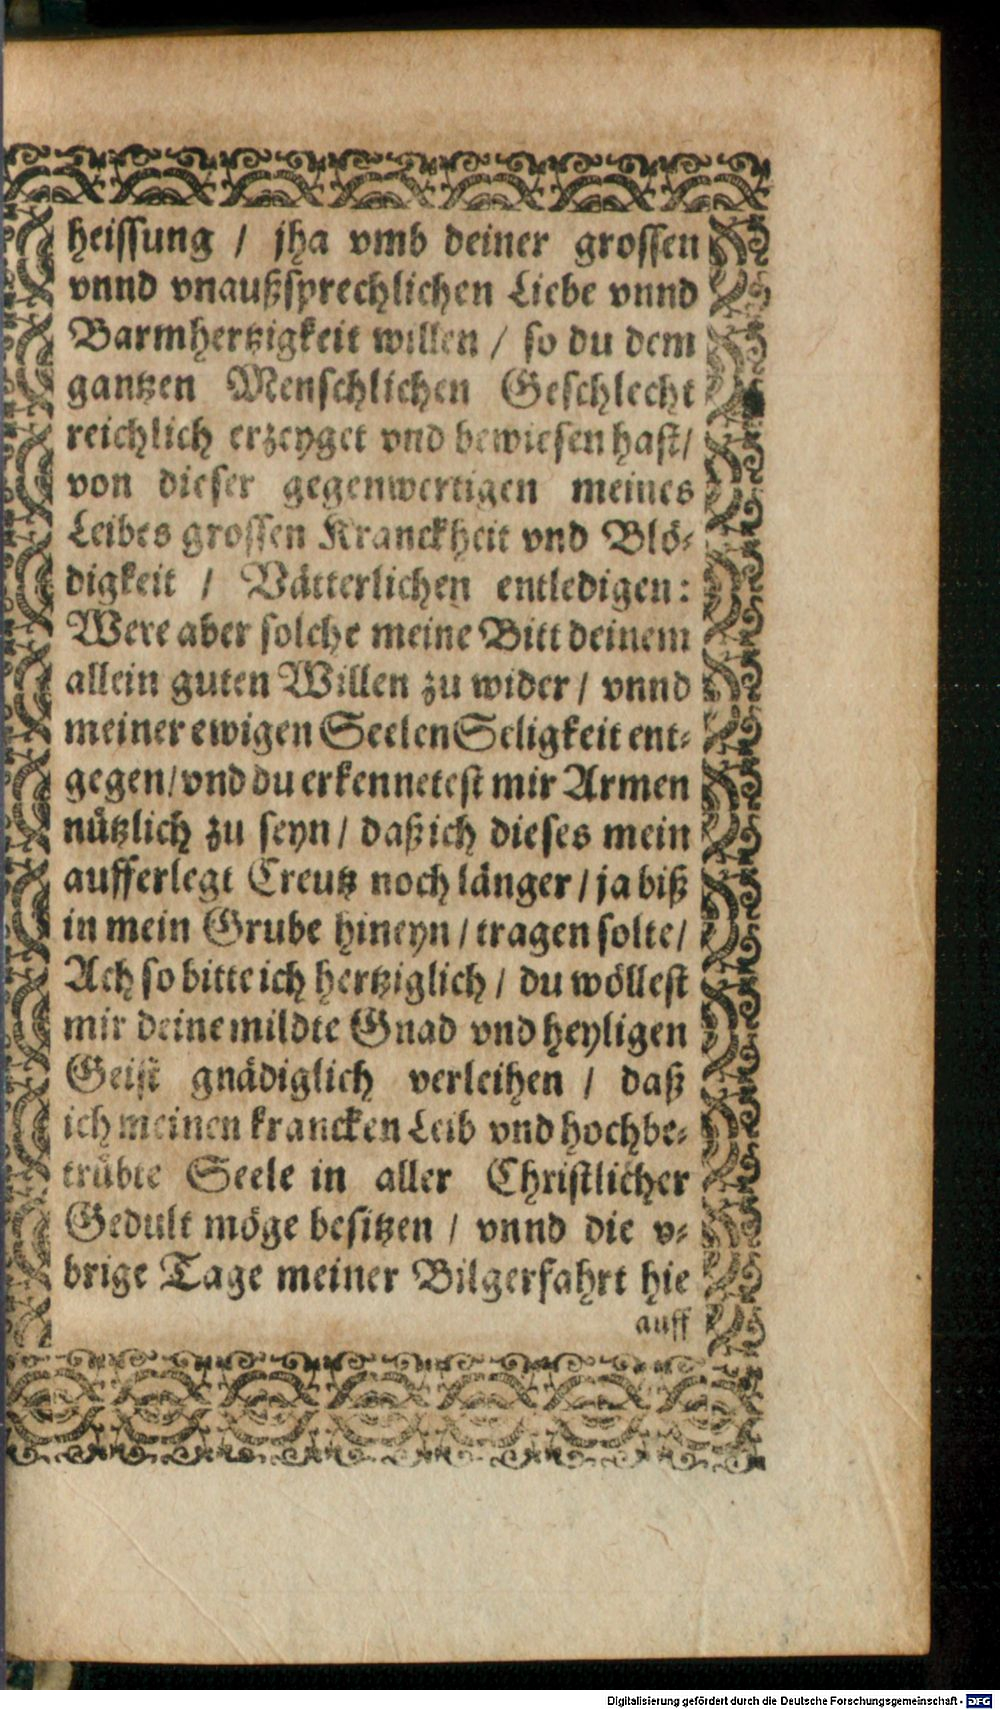 heissung / jha vmb deiner grossen
vnnd vnaußsprechlichen Liebe vnnd
Barmhertzigkeit willen / so du dem
gantzen Menschlichen Geschlecht
reichlich erzeyget vnd bewiesen hast/
von dieser gegenwertigen meines
Leibes grossen Kranckheit vnd Blö-
digkeit / Vätterlichen entledigen:
Were aber solche meine Bitt deinem
allein guten Willen zu wider / vnnd
meiner ewigen Seelen Seligkeit ent-
gegen/vnd du erkennetest mir Armen
nützlich zu seyn / daß ich dieses mein
aufferlegt Creutz noch länger / ja biß
in mein Grube hineyn / tragen solte/
Ach so bitte ich hertziglich / du wöllest
mir deine mildte Gnad vnd heyligen
Geist gnädiglich verleihen / daß
ich meinen krancken Leib vnd hochbe-
trübte Seele in aller Christlicher
Gedult möge besitzen / vnnd die v-
brige Tage meiner Bilgerfahrt hie
auff
Digitalisierung gefördert durch die Deutsche Forschungsgemeinschaft - DFG